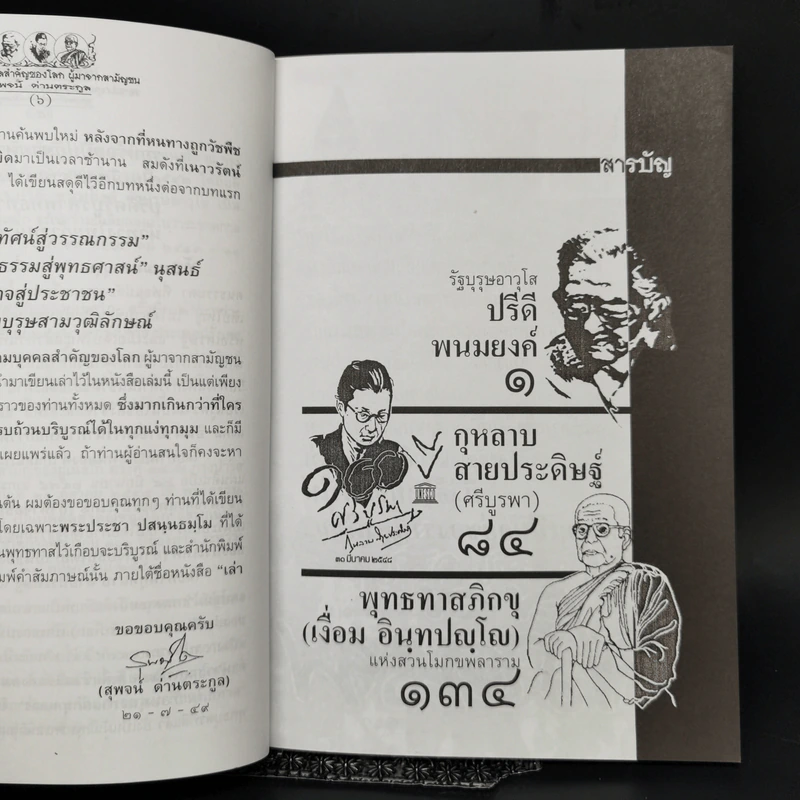 ลสำคัญของโลก ผู้มาจากสามัญชน
พจน์ ด่านตระกูล
(๖)
านค้นพบใหม่ หลังจากที่หนทางถูกวัชพืช
ปิดมาเป็นเวลาช้านาน สมดังที่เนาวรัตน์
ได้เขียนสดุดีไว้อีกบทหนึ่งต่อจากบทแรก
ทัศน์สู่วรรณกรรม”
ธรรมสู่พุทธศาสน์” นุสนธ์
าจสู่ประชาชน”
บุรุษสามวุฒิลักษณ์
ามบุคคลสำคัญของโลก ผู้มาจากสามัญชน
มาเขียนเล่าไว้ในหนังสือเล่มนี้ เป็นแต่เพียง
ราวของท่านทั้งหมด ซึ่งมากเกินกว่าที่ใคร
รบถ้วนบริบูรณ์ได้ในทุกแง่ทุกมุม และก็มี
เผยแพร่แล้ว ถ้าท่านผู้อ่านสนใจก็คงจะหา
นต้น ผมต้องขอขอบคุณทุกๆ ท่านที่ได้เขียน
โดยเฉพาะพระประชา ปสนฺนธมฺโม ที่ได้
นพุทธทาสไว้เกือบจะบริบูรณ์ และสำนักพิมพ์
มพ์คำสัมภาษณ์นั้น ภายใต้ชื่อหนังสือ “เล่า
ขอขอบคุณครับ
(สุพจน์ ด่านตระกูล)
๒๑ - ๗ - ๔๙
สารบัญ
รัฐบุรุษอาวุโส
ปรีดี
พนมยงค์
๑
๑๐๐ ปี
ศรีบูรพา
กุหลาบ
สายประดิษฐ์
(ศรีบูรพา)
๘๔
๓๐ มีนาคม ๒๕๔๘
พุทธทาสภิกขุ
(เงื่อม อินฺทปญฺโญ)
แห่งสวนโมกขพลาราม
๑๓๔